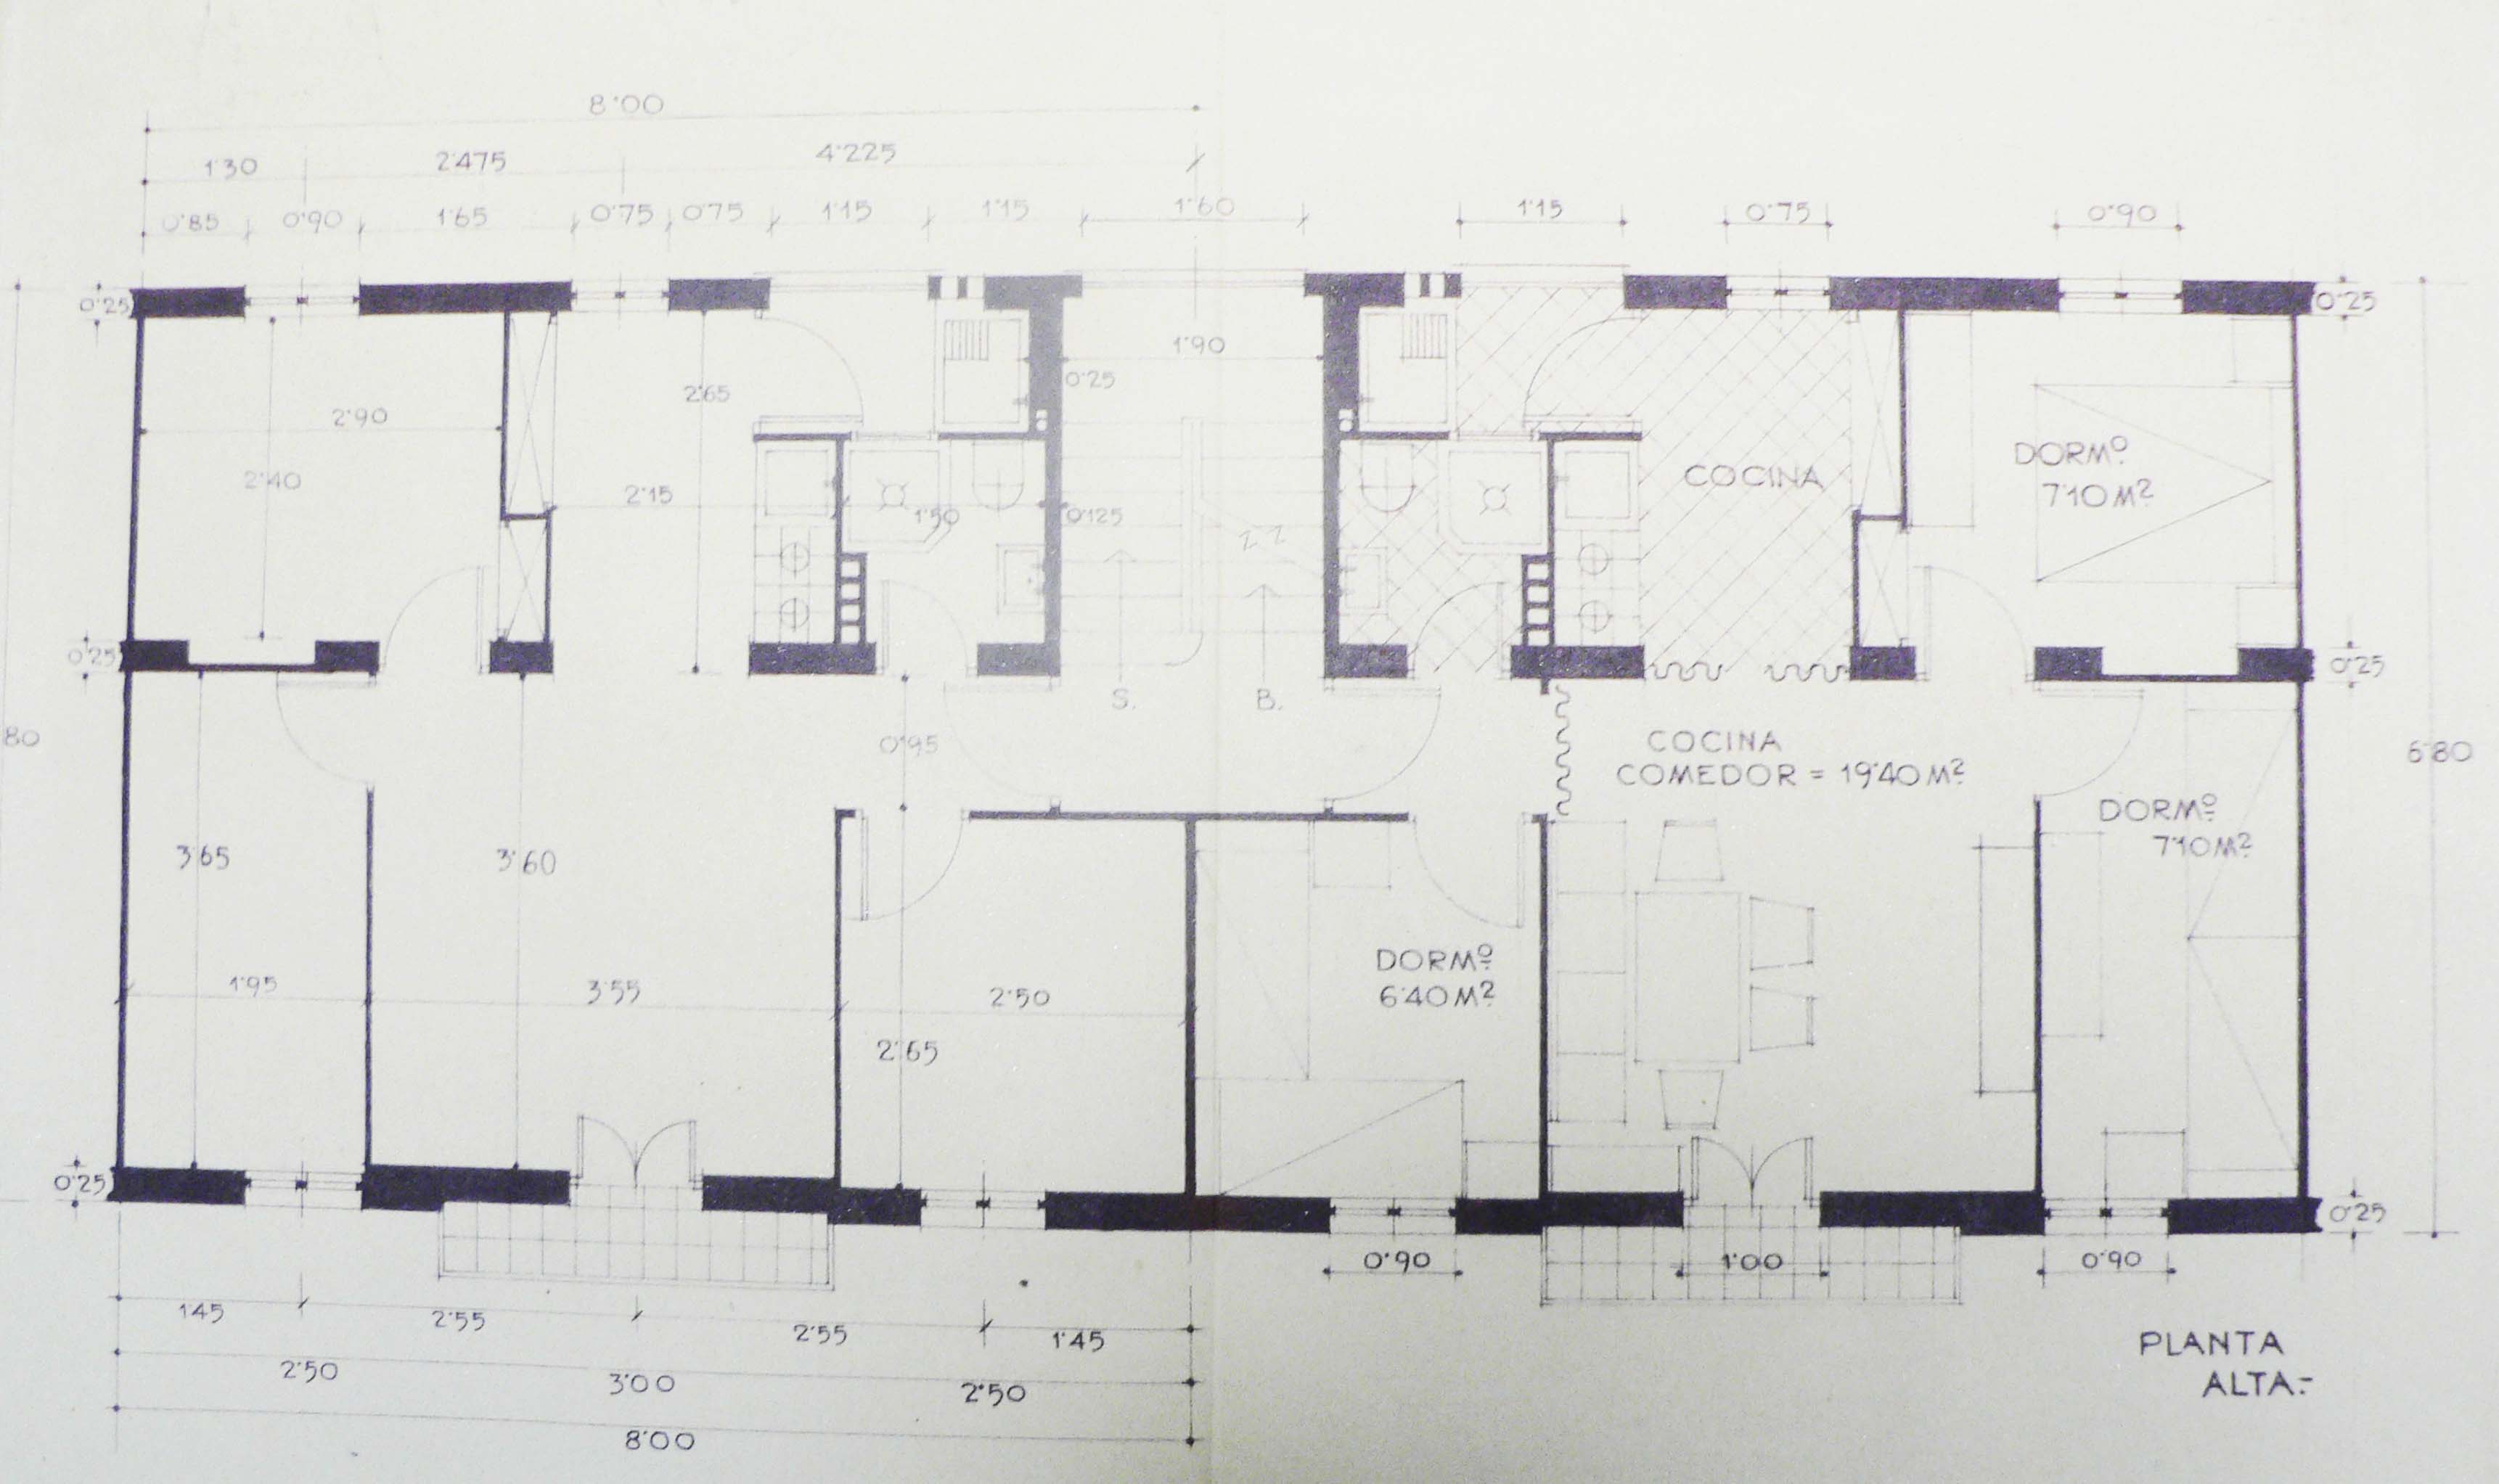 8'00
1'30 2'475 4'225
0'85 0'90 1'65 0'75 0'75 1'15 1'15 1'60 1'15 0'75 0'90
0'25 0'25
1'90
0'25
2'65
2'90
2'40
2'15
1'50
0'125
COCINA
DORMº
7'10 M²
0'25 0'25
S. B.
80
0'95
COCINA
COMEDOR = 19'40 M²
6'80
DORMº
7'10 M²
3'65 3'60
DORMº
6'40 M²
1'95 3'55 2'50
2'65
0'25 0'25
0'90 1'00 0'90
1'45 2'55 2'55 1'45
2'50 3'00 2'50
8'00
PLANTA
ALTA.-